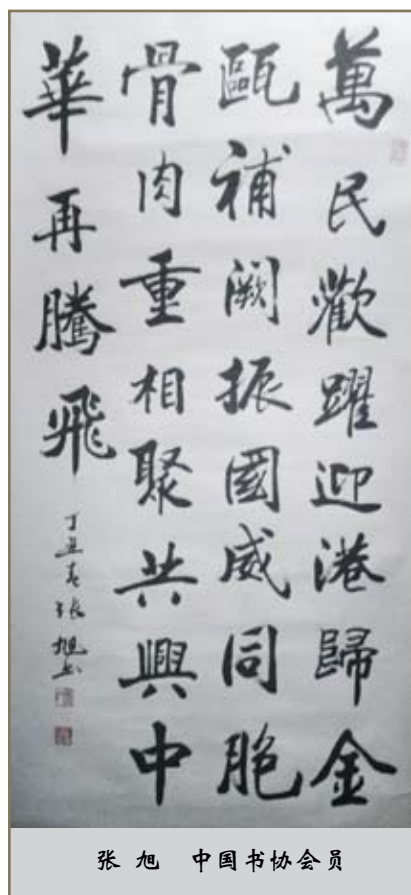 萬民歡躍迎港歸金
甌補闕振國威同胞
骨肉重相聚共興中
華再騰飛
丁丑春張旭書
张旭 中国书协会员